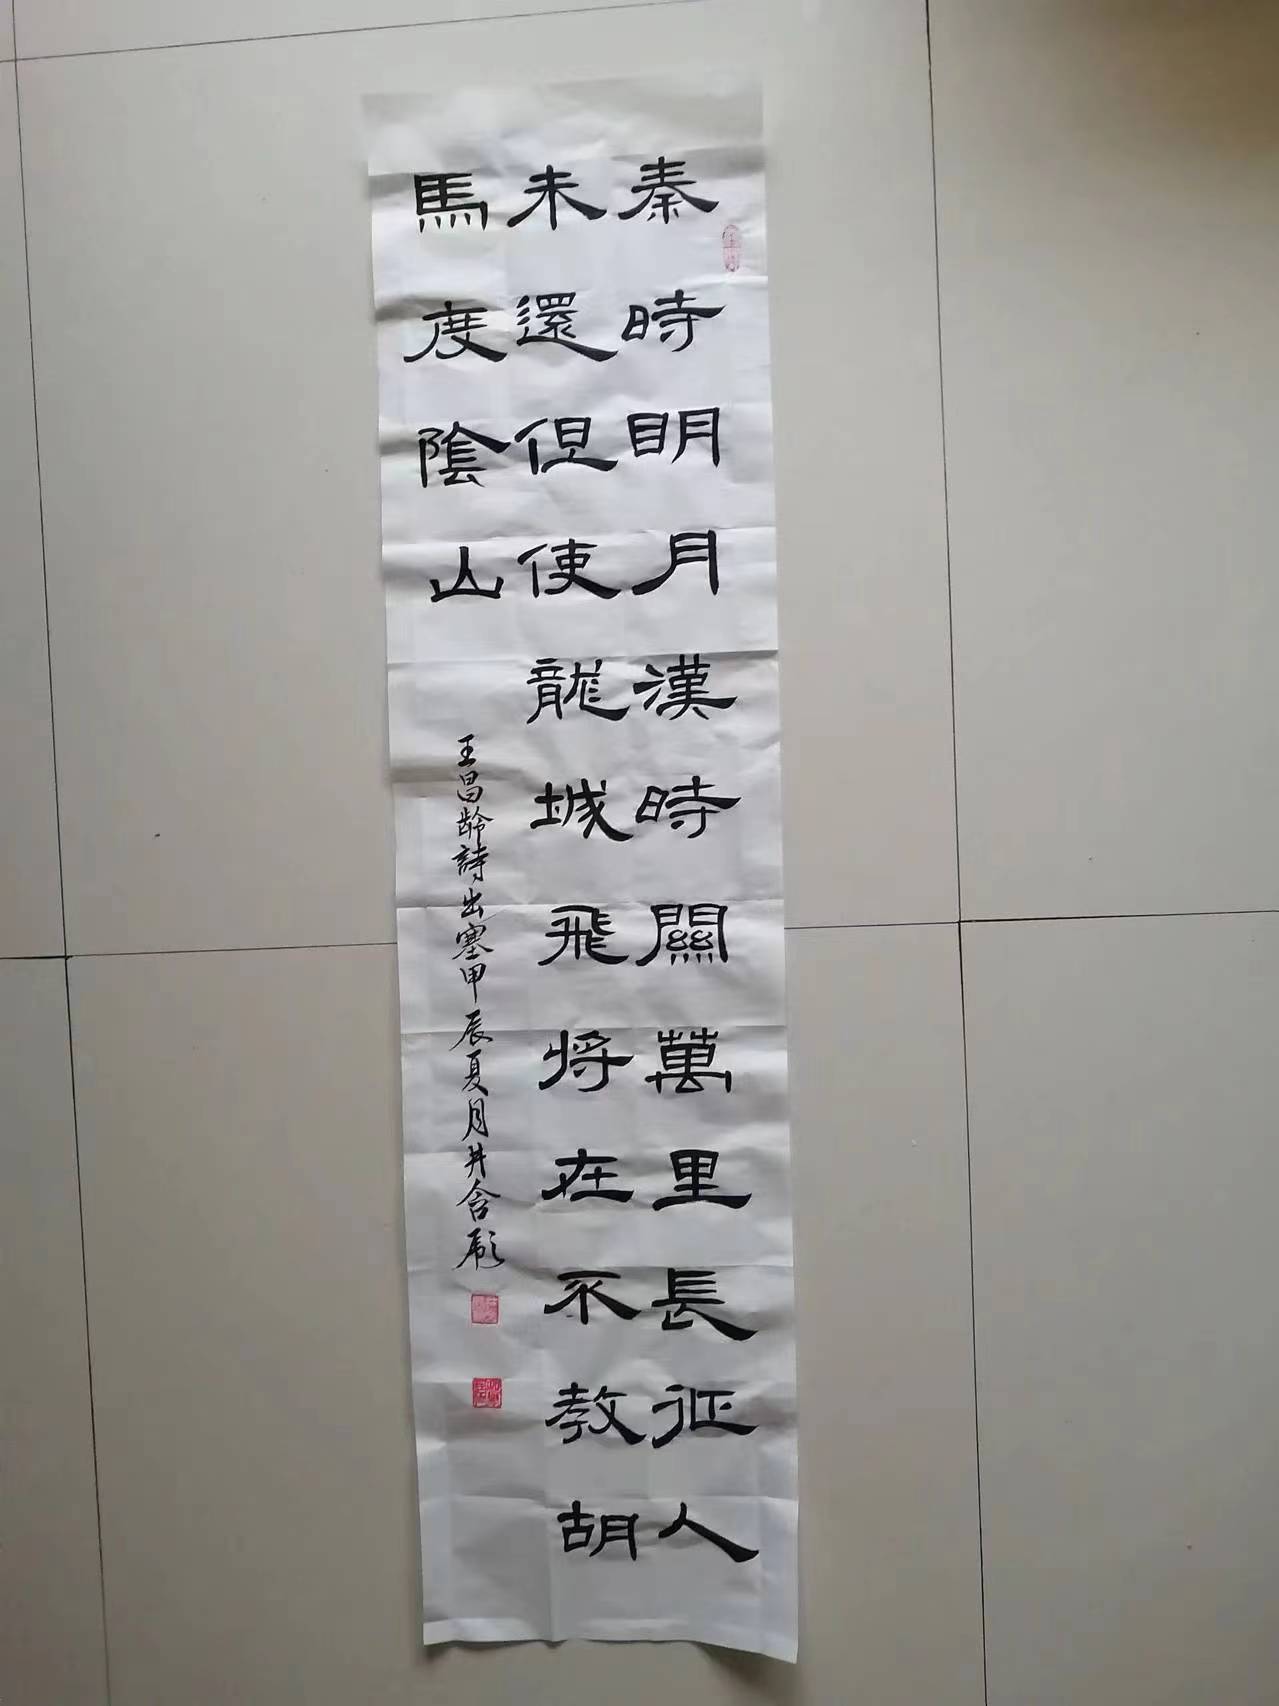 秦時明月漢時關萬里長征人
未還但使龍城飛将在不教胡
馬度陰山
王昌齡詩出塞甲辰夏月井含彪